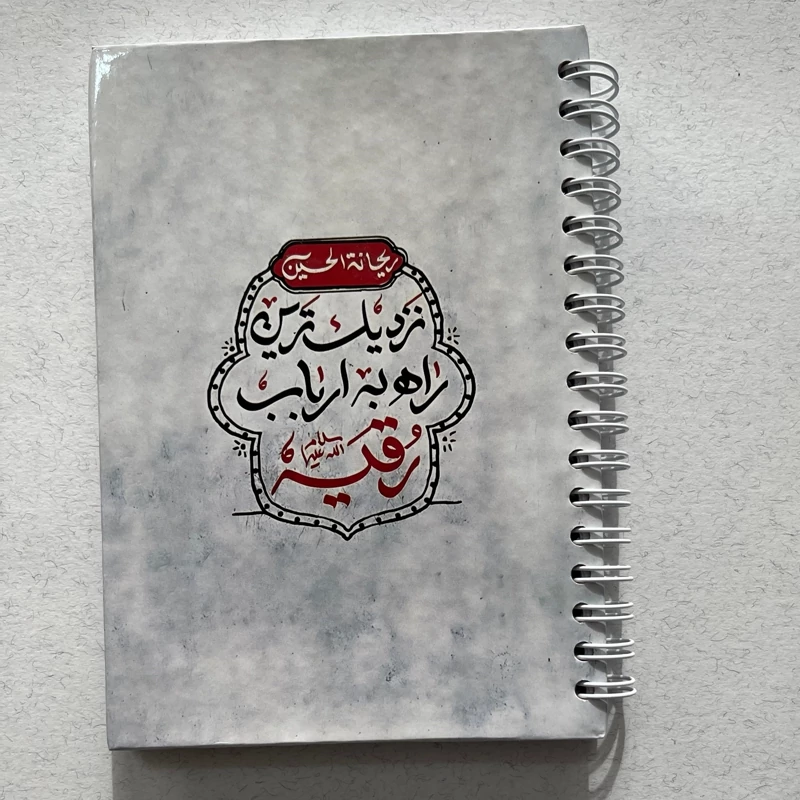 ریحانة الحسین
نزدیک ترین
راه به ارباب
رقیه
سلام الله علیها